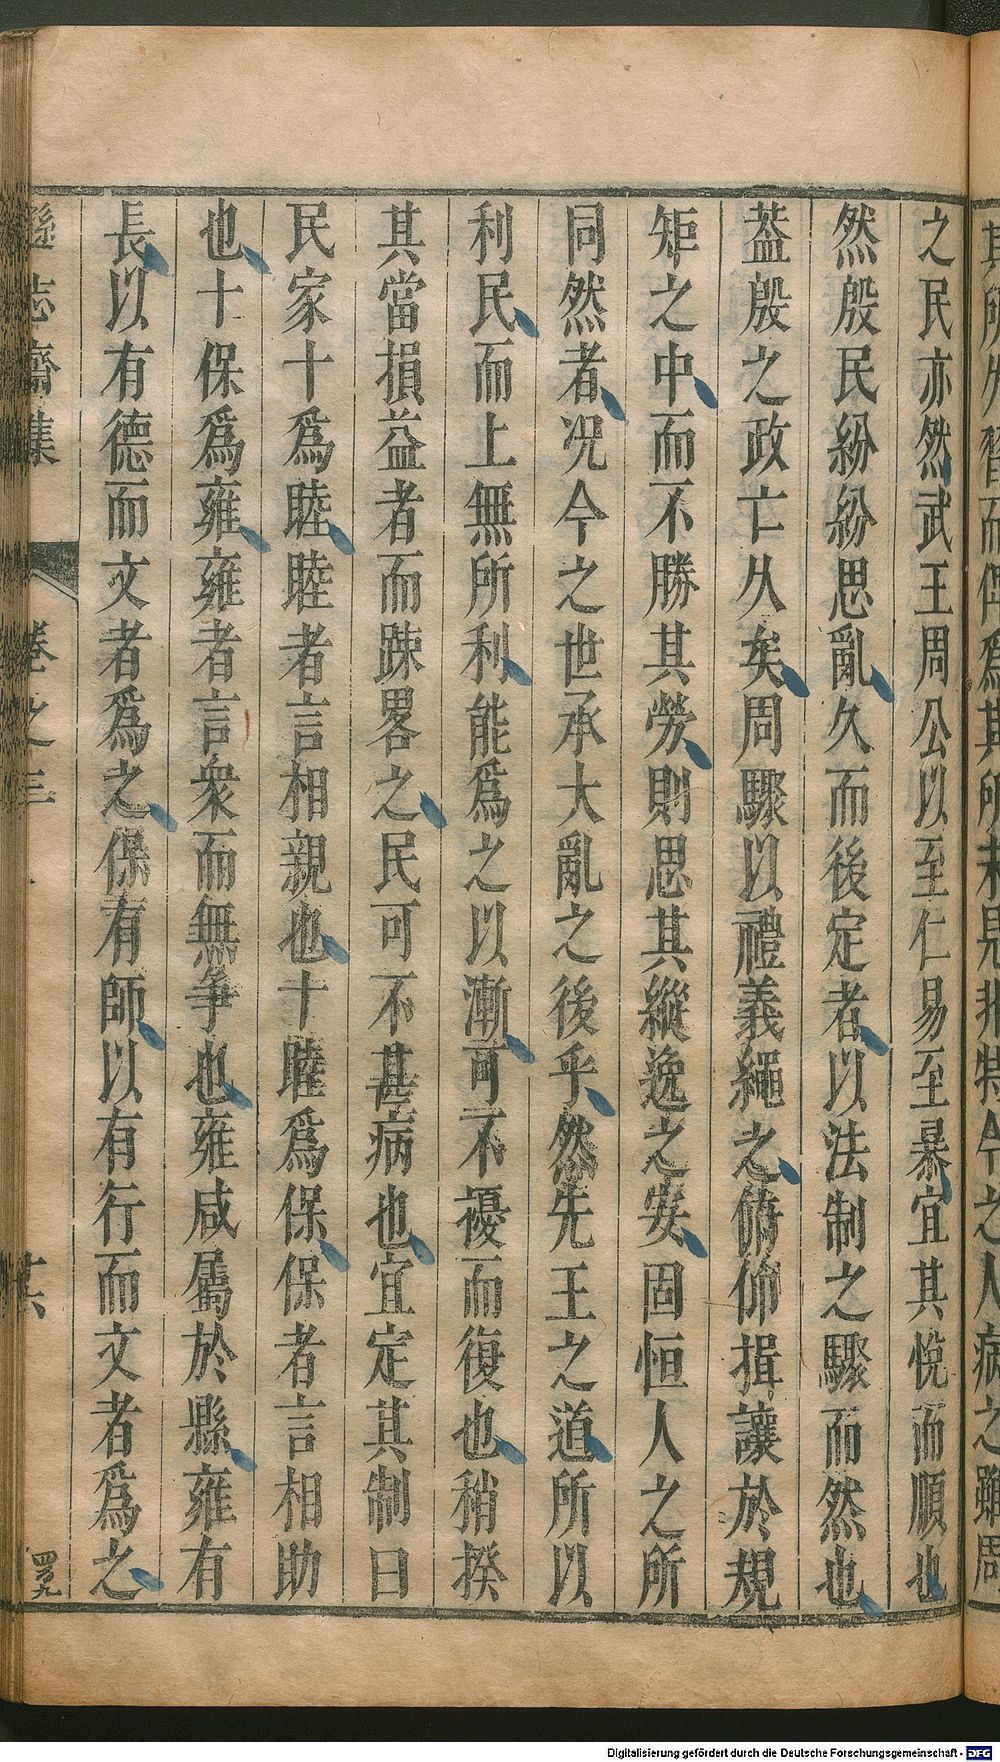 之民亦然武王周公以至仁易至暴宜其悅而順也
然殷民紛紛思亂久而後定者以法制之驟而然也
葢殷之政亡久矣周驟以禮義繩之俯仰揖讓於規
矩之中而不勝其勞則思其縱逸之安固恒人之所
同然者况今之世承大亂之後乎然先王之道所以
利民而上無所利能爲之以漸可不擾而復也稍揆
其當損益者而踈畧之民可不甚病也宜定其制曰
民家十爲睦睦者言相親也十睦爲保保者言相助
也十保爲雍雍者言衆而無爭也雍咸屬於縣雍有
長以有德而文者爲之保有師以有行而文者爲之
遜志齋集
卷之三
廿六
Digitalisierung gefördert durch die Deutsche Forschungsgemeinschaft - DFG